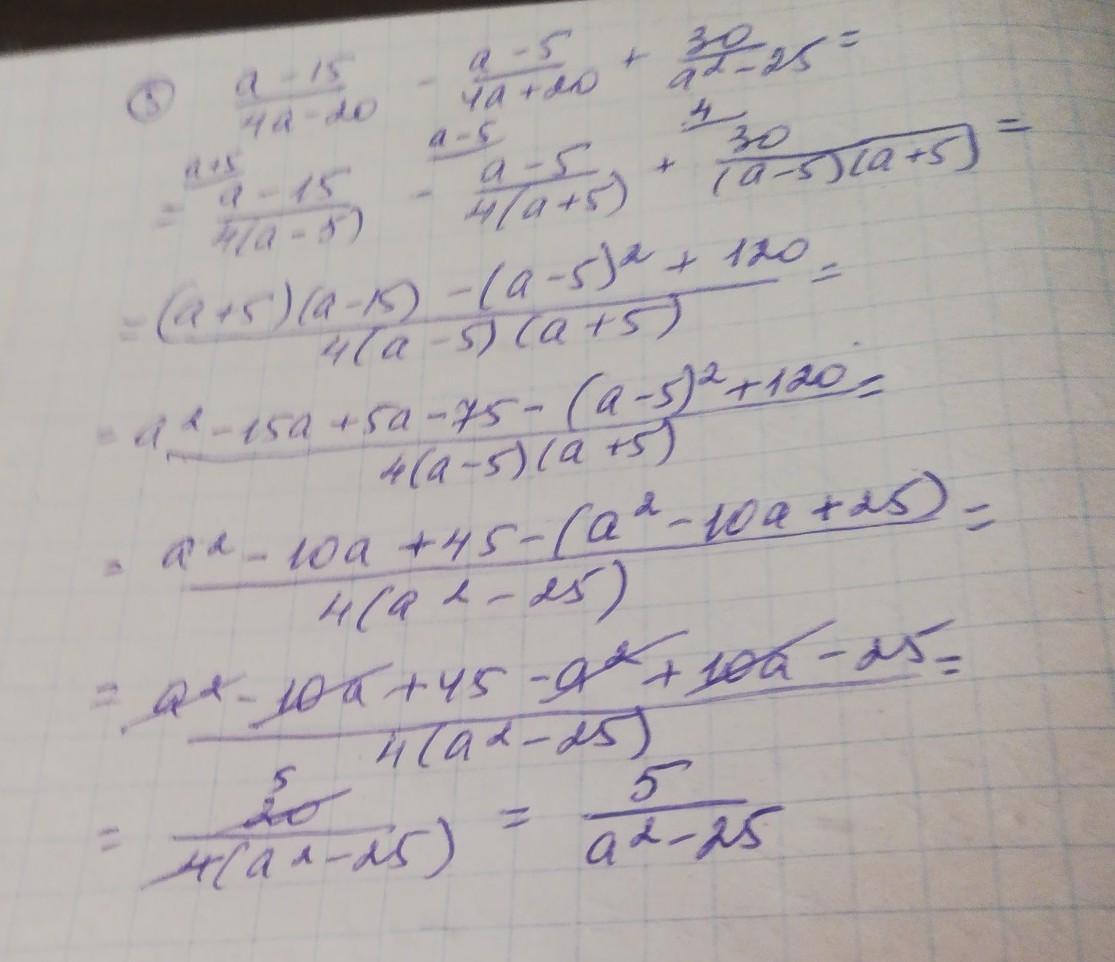 ③ (a-15)/(4a-20) - (a-5)/(4a+20) + 30/(a²-25) =
= (a-15)/(4(a-5)) ^(a+5) - (a-5)/(4(a+5)) ^(a-5) + 30/((a-5)(a+5)) ^4 =
= ((a+5)(a-15) - (a-5)² + 120)/(4(a-5)(a+5)) =
= (a²-15a+5a-75-(a-5)²+120)/(4(a-5)(a+5)) =
= (a²-10a+45-(a²-10a+25))/(4(a²-25)) =
= (a²-10a+45-a²+10a-25)/(4(a²-25)) =
= 20/(4(a²-25)) ^5 = 5/(a²-25)